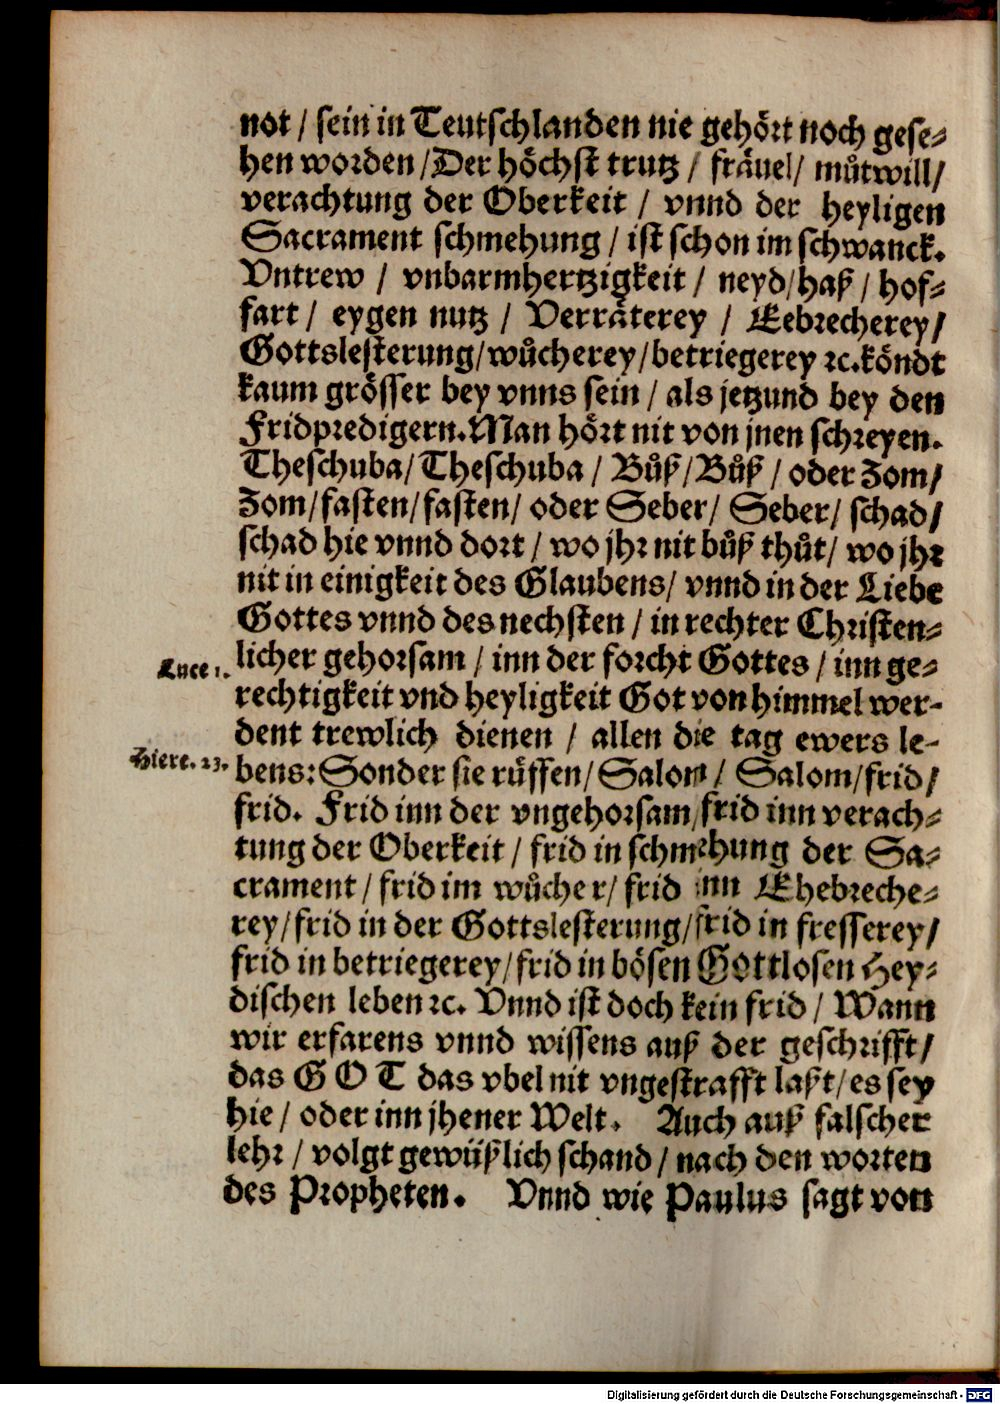 not / sein in Teutschlanden nie gehört noch gese-
hen worden / Der höchst trutz / fräuel / můtwill /
verachtung der Oberkeit / vnnd der heyligen
Sacrament schmehung / ist schon im schwanck.
Vntrew / vnbarmhertzigkeit / neyd / haß / hof-
fart / eygen nutz / Verräterey / Eebrecherey /
Gottslesterung / wůcherey / betriegerey ꝛc. köndt
kaum grösser bey vnns sein / als jetzund bey den
Fridpredigern. Man hört nit von jnen schreyen.
Theschuba / Theschuba / Bůß / Bůß / oder Zom /
Zom / fasten / fasten / oder Seber / Seber / schad /
schad hie vnnd dort / wo jhr nit bůß thůt / wo jhr
nit in einigkeit des Glaubens / vnnd in der Liebe
Gottes vnnd des nechsten / in rechter Christen-
Luce 1. licher gehorsam / inn der forcht Gottes / inn ge-
rechtigkeit vnd heyligkeit Got von himmel wer-
dent trewlich dienen / allen die tag ewers le-
Hiere. 23. bens: Sonder sie rüffen / Salom / Salom / frid /
frid. Frid inn der vngehorsam / frid inn verach-
tung der Oberkeit / frid in schmehung der Sa-
crament / frid im wůcher / frid inn Ehebreche-
rey / frid in der Gottslesterung / frid in fresserey /
frid in betriegerey / frid in bösen Gottlosen Hey-
dischen leben ꝛc. Vnnd ist doch kein frid / Wann
wir erfarens vnnd wissens auß der geschrifft /
das GOT das vbel nit vngestrafft laßt / es sey
hie / oder inn jhener Welt. Auch auß falscher
lehr / volgt gewüßlich schand / nach den worten
des Propheten. Vnnd wie Paulus sagt von
Digitalisierung gefördert durch die Deutsche Forschungsgemeinschaft - DFG